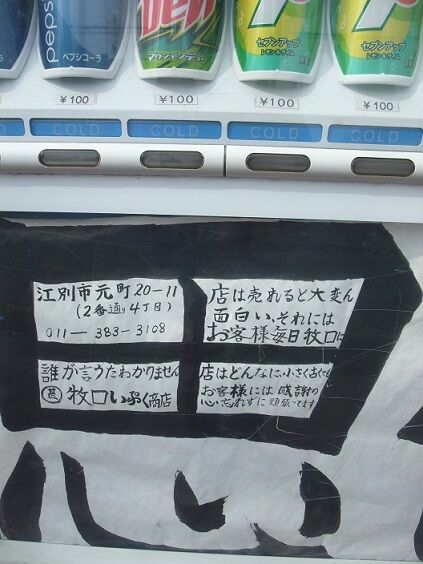 pepsi
ペプシコーラ
Dew
マウンテンデュー
7
セブンアップ
レモン&ライム
7
セブンアップ
レモン&ライム
¥100
¥100
¥100
¥100
COLD
COLD
COLD
COLD
江別市元町20-11
(2番通り4丁目)
011-383-3108
店は売れると大変ん
面白い、それには
お客様毎日牧口は
誰が言うたわかりません
牧口いぶく商店
店はどんなに小さく古くても
お客様には感謝の
心忘れずに頑張てます